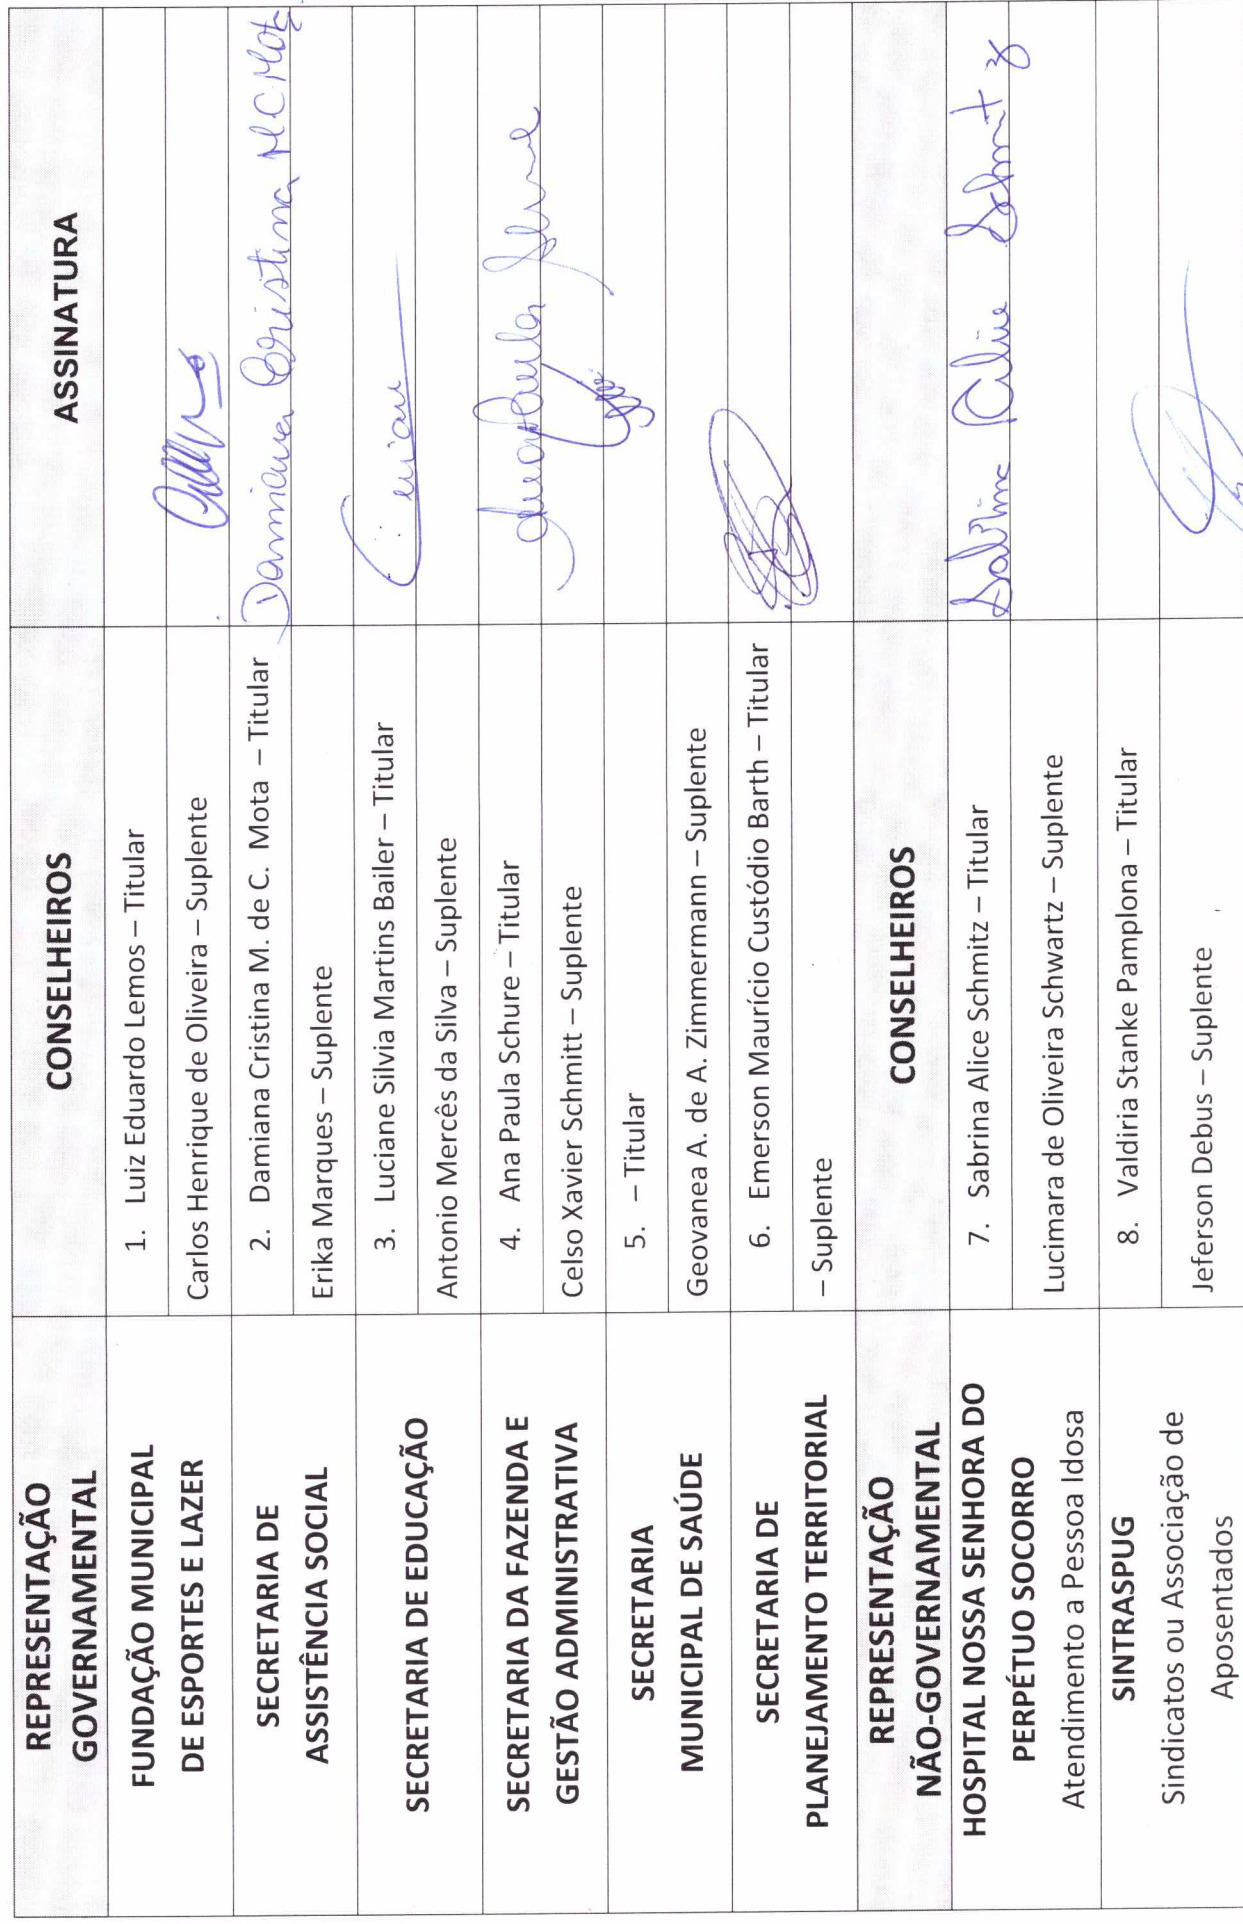 REPRESENTAÇÃO
GOVERNAMENTAL
CONSELHEIROS
ASSINATURA
FUNDAÇÃO MUNICIPAL
DE ESPORTES E LAZER
1. Luiz Eduardo Lemos – Titular
Carlos Henrique de Oliveira – Suplente
SECRETARIA DE
ASSISTÊNCIA SOCIAL
2. Damiana Cristina M. de C. Mota – Titular
Damiana Cristina M C Mota
Erika Marques – Suplente
SECRETARIA DE EDUCAÇÃO
3. Luciane Silvia Martins Bailer – Titular
Antonio Mercês da Silva – Suplente
SECRETARIA DA FAZENDA E
GESTÃO ADMINISTRATIVA
4. Ana Paula Schure – Titular
Ana Paula
Celso Xavier Schmitt – Suplente
SECRETARIA
MUNICIPAL DE SAÚDE
5. – Titular
Geovanea A. de A. Zimmermann – Suplente
SECRETARIA DE
PLANEJAMENTO TERRITORIAL
6. Emerson Maurício Custódio Barth – Titular
– Suplente
REPRESENTAÇÃO
NÃO-GOVERNAMENTAL
CONSELHEIROS
HOSPITAL NOSSA SENHORA DO
PERPÉTUO SOCORRO
Atendimento a Pessoa Idosa
7. Sabrina Alice Schmitz – Titular
Sabrina Alice Schmitz
Lucimara de Oliveira Schwartz – Suplente
SINTRASPUG
Sindicatos ou Associação de
Aposentados
8. Valdiria Stanke Pamplona – Titular
Jeferson Debus – Suplente